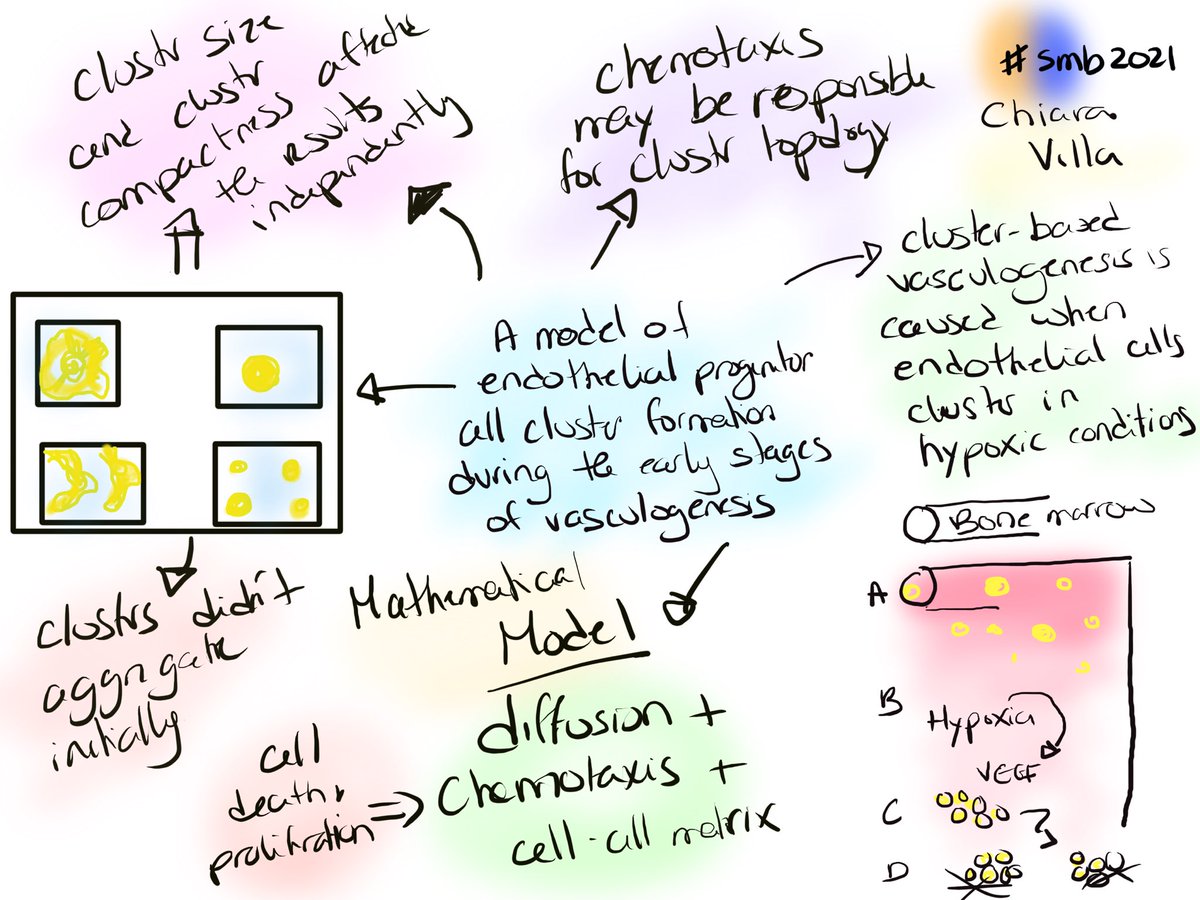 clustr size
and clustr
compactness affecte
the results
independently
chemotaxis
may be responsible
for clustr topology
#smb2021
Chiara
Villa
cluster-based
vasculogenesis is
caused when
endothelial cells
cluster in
hypoxic conditions
A model of
endothelial proginitor
cell cluster formation
during the early stages
of vasculogenesis
Bone marrow
A
B
Hypoxia
VEGF
C
D
clustrs didn't
aggrigate
initially
Mathematical
Model
diffusion +
Chemotaxis +
cell-cell matrix
cell
death &
prolifration